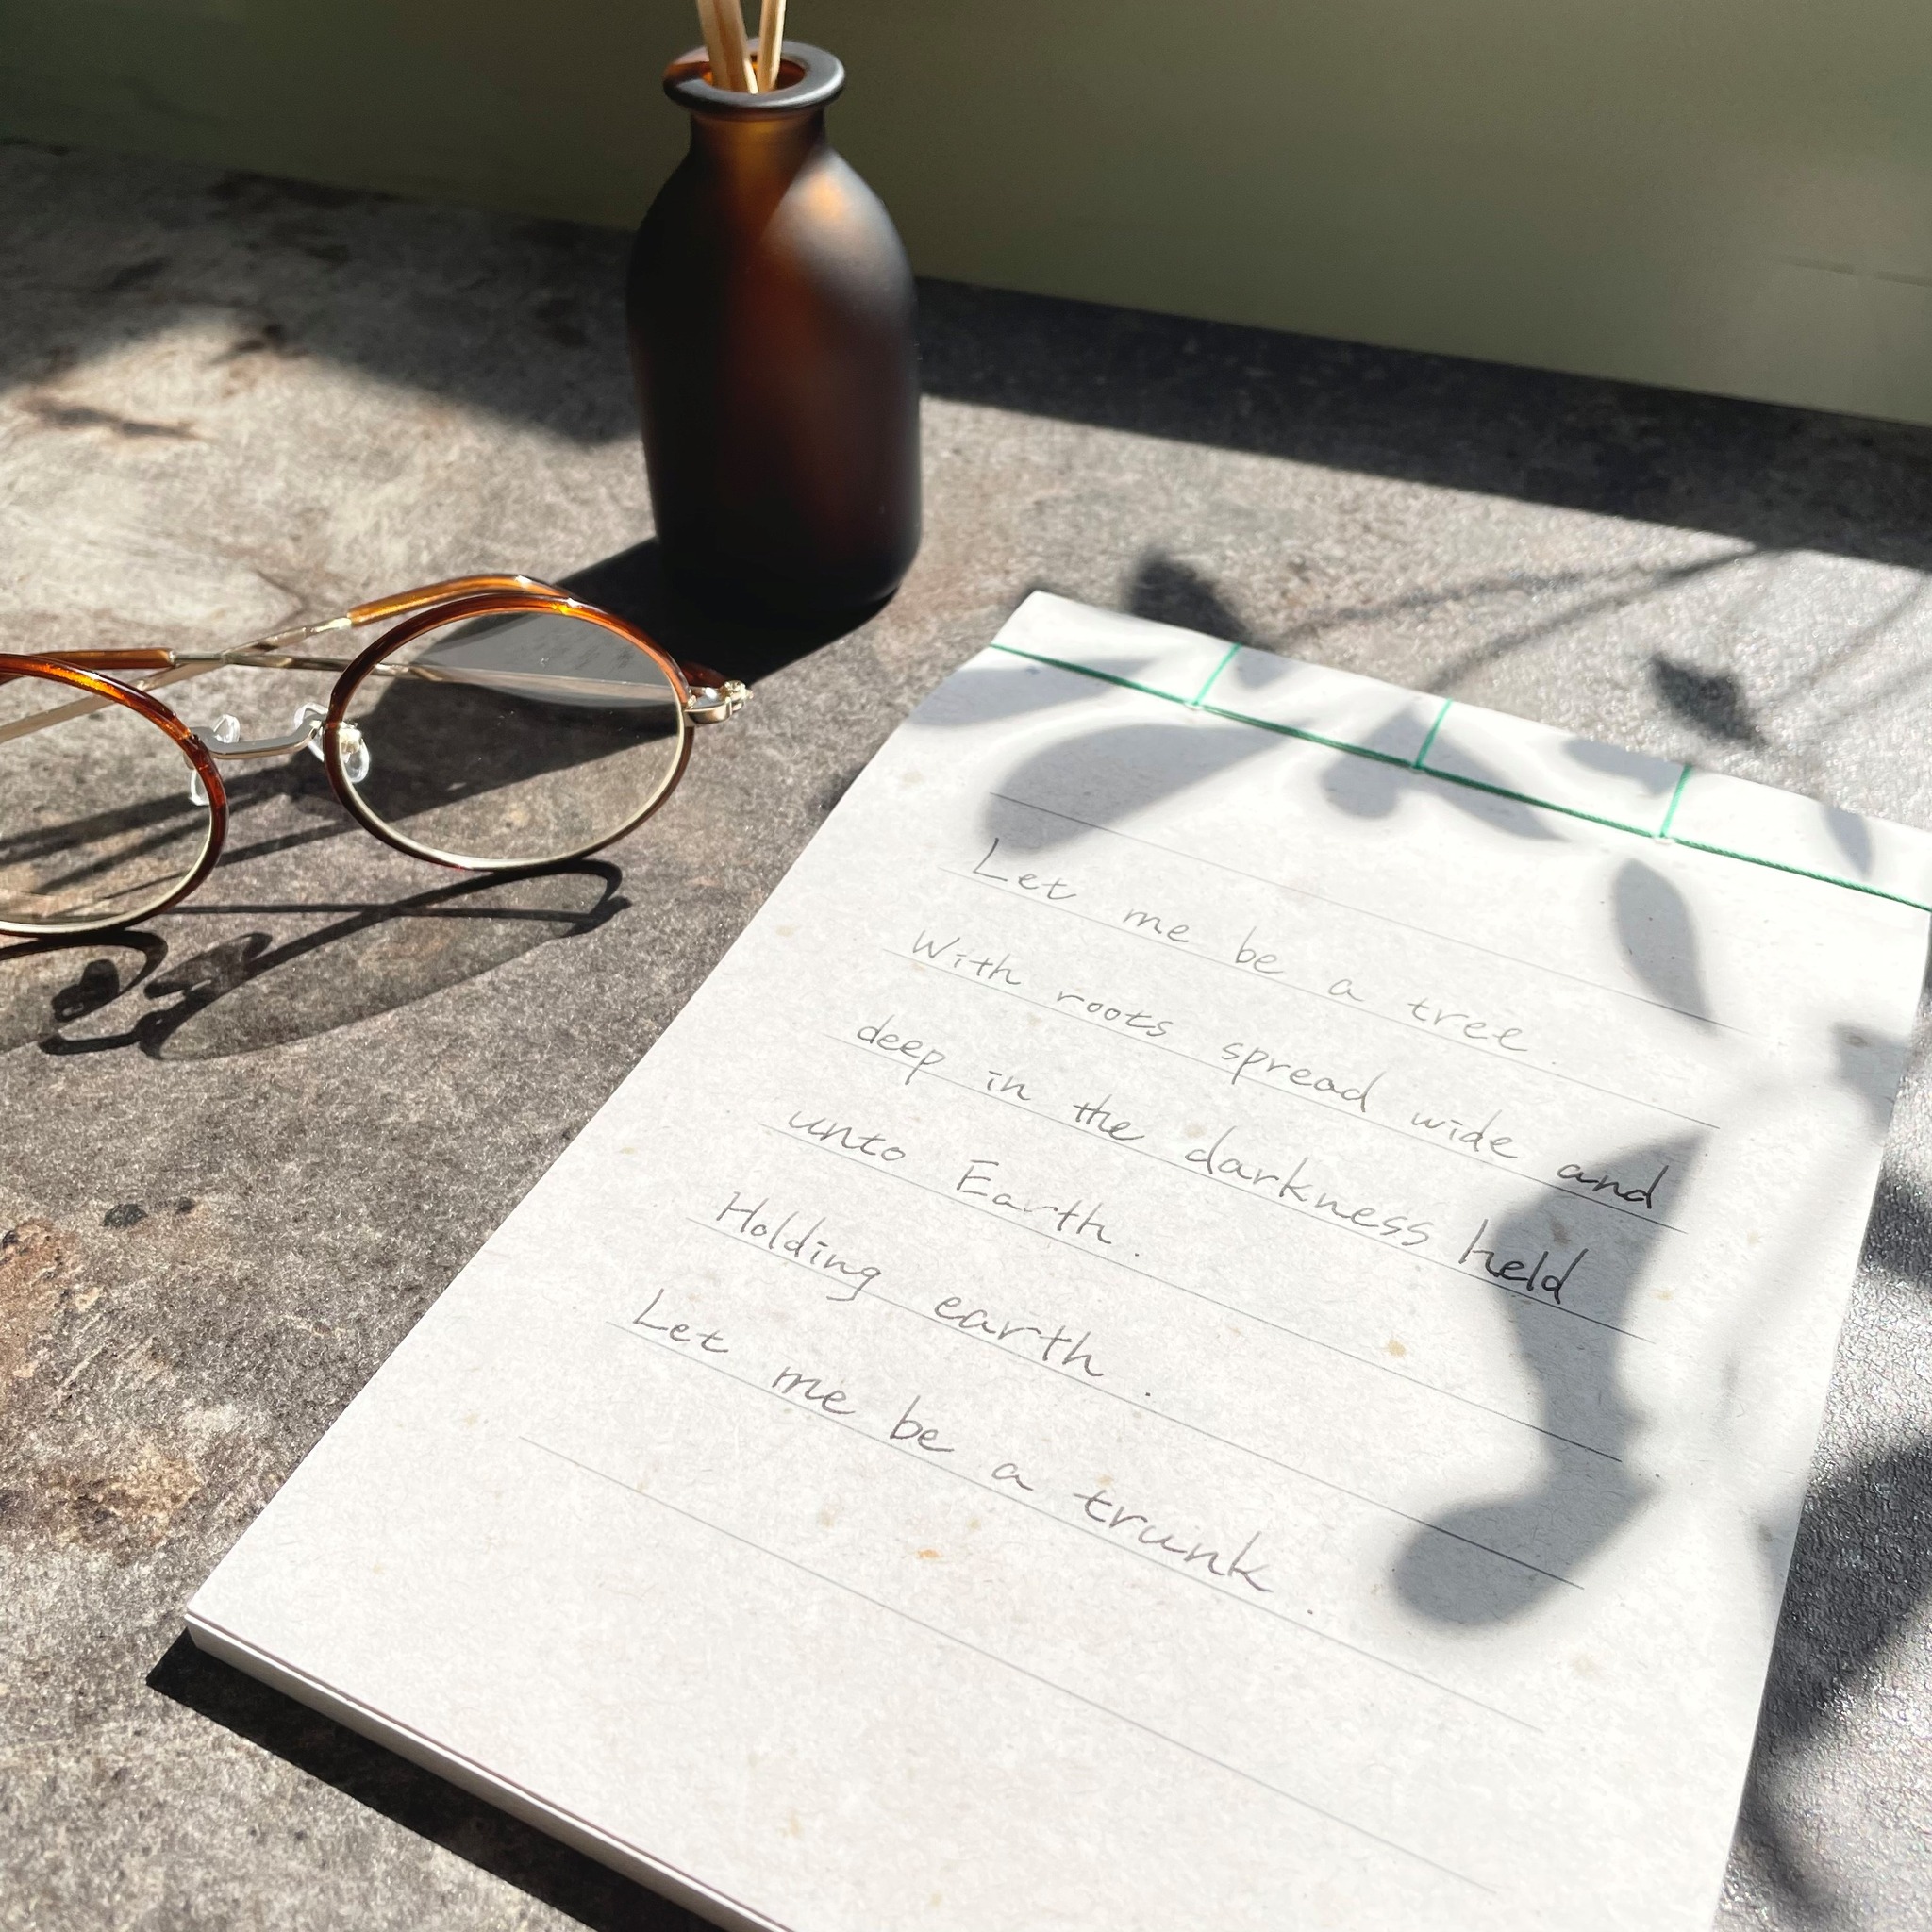 Let me be a tree.
With roots spread wide and
deep in the darkness held
unto Earth.
Holding earth.
Let me be a trunk.